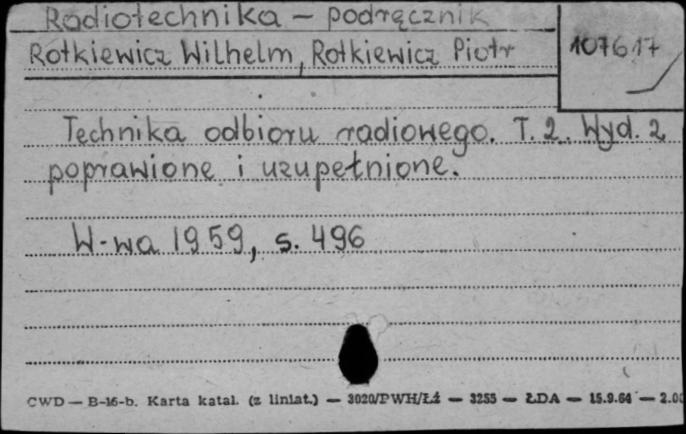 Radiotechnika – podręcznik
107617
Rotkiewicz Wilhelm, Rotkiewicz Piotr
Technika odbioru radiowego. T. 2. Wyd. 2
poprawione i uzupełnione.
W-wa 1959, s. 496
CWD — B-16-b. Karta katal. (z liniat.) — 3020/PWH/Łź — 3255 — ŁDA — 15.9.64 — 2.00